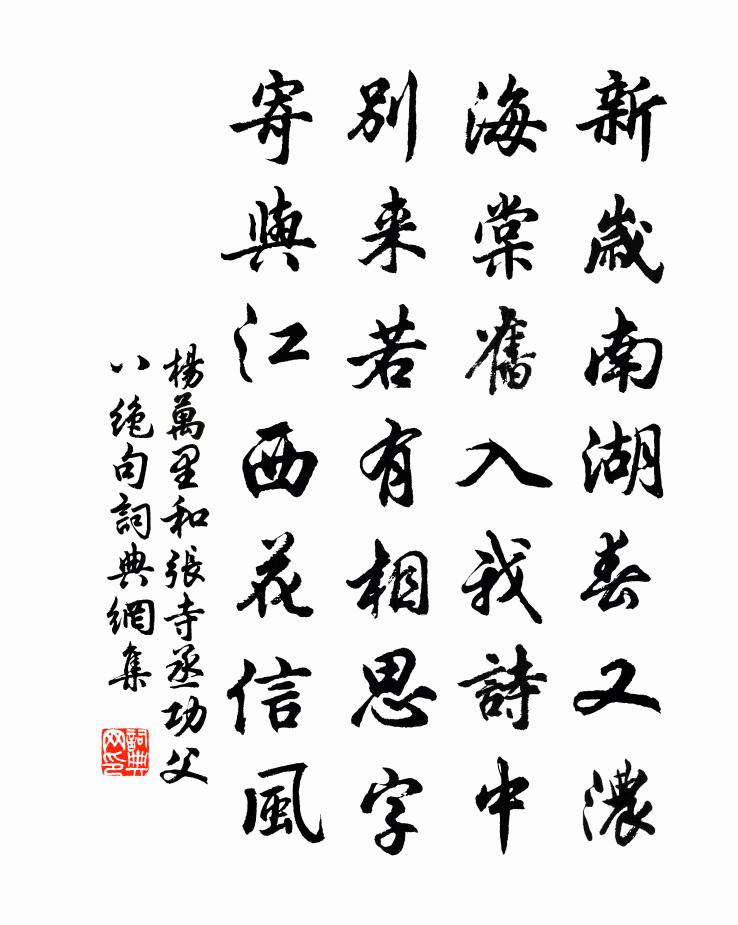 新歲南湖春又濃
海棠舊入我詩中
別来若有相思字
寄與江西花信風
楊萬里和張寺丞功父
八絕句詞典網集
詞典网印